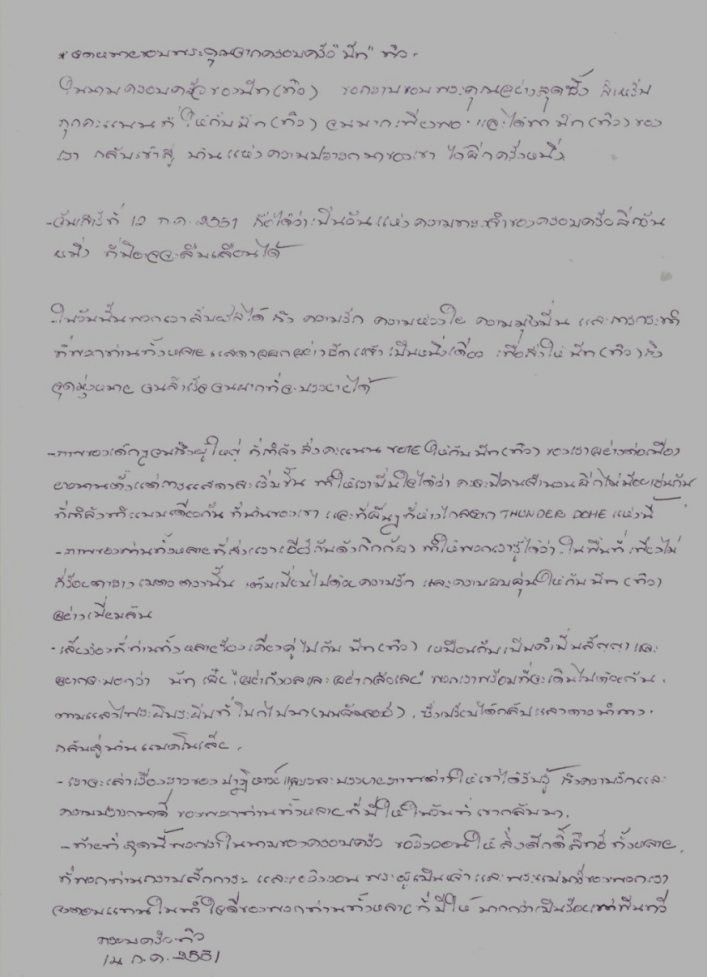 *จดหมายขอบพระคุณจากครอบครัว "นัท" ทิว.
ในนามครอบครัวของนัท(ทิว) ขอกราบขอบพระคุณอย่างสุดซึ้ง สำหรับ
ทุกคะแนนที่ให้กับนัท(ทิว) จนมากเพียงพอ และได้พานัท(ทิว)ของ
เรา กลับเข้าสู่ บ้านแห่งความปรารถนาของเขา ได้อีกครั้งหนึ่ง
-วันเสาร์ที่ 12 ก.ค. 2551 ถือได้ว่าเป็นวันแห่งความทรงจำของครอบครัวอีกวัน
หนึ่ง ที่มิอาจจะลืมเลือนได้
ในวันนั้นพวกเราสัมผัสได้ ถึง ความรัก ความห่วงใย ความมุ่งมั่น และการกระทำ
ที่พวกท่านทั้งหลาย แสดงออกอย่างชัดเจน เป็นหนึ่งเดียว เพื่อส่งให้ นัท(ทิว)ถึง
จุดมุ่งหมาย จนสำเร็จ จนยากที่จะบรรยายได้
-ภาพของเด็กๆจนถึงผู้ใหญ่ ที่กำลังส่งคะแนน VOTE ให้กับ นัท(ทิว) ของเราอย่างต่อเนื่อง
ยาวนานตั้งแต่การแสดงจะเริ่มขึ้น ทำให้เรามั่นใจได้ว่า คงจะมีคนจำนวนอีกไม่น้อยเช่นกัน
ที่กำลังทำแบบเดียวกัน ที่บ้านของเขา และที่อื่นๆที่ห่างไกลจาก THUNDER DOME แห่งนี้
-ภาพของท่านทั้งหลายที่ส่งเสียงเชียร์กันดังกึกก้อง ทำให้พวกเรารู้ได้ว่า ในพื้นที่เพียงไม่
กี่ร้อยตารางเมตรตรงนั้น เต็มเปี่ยมไปด้วยความรัก และความอบอุ่นให้กับ นัท(ทิว)
อย่างเปี่ยมล้น
-เสียงร้องที่ท่านทั้งหลายร้องเคียงคู่ไปกับ นัท(ทิว) เหมือนกับเป็นคำมั่นสัญญา และ
อยากจะบอกว่า นัท เอ๋ย อย่ากังวลและอย่ากลัวเลย พวกเราพร้อมที่จะเดินไปด้วยกัน.
กลับสู่บ้านแบบใบเตย.
-เราจะเล่าเรื่องราวของปาฏิหาริย์และจะบรรยายภาพต่างๆให้เขาได้รับรู้ ถึงความรักและ
ความปรารถนาดี ของพวกท่านทั้งหลายที่มีให้ในวันที่เขากลับมา.
-ท้ายที่สุดนี้พวกเราในนามของครอบครัว ขอวิงวอนให้สิ่งศักดิ์สิทธิ์ทั้งหลาย.
ที่พวกท่านเคารพสักการะ และขอวิงวอน พระผู้เป็นเจ้า และพระแม่มารีของพวกเรา
จงตอบแทนในน้ำใจดีของพวกท่านทั้งหลายที่มีให้ มากกว่าเป็นร้อยเท่าพันทวี
ครอบครัวทิว
14 ก.ค. 2551